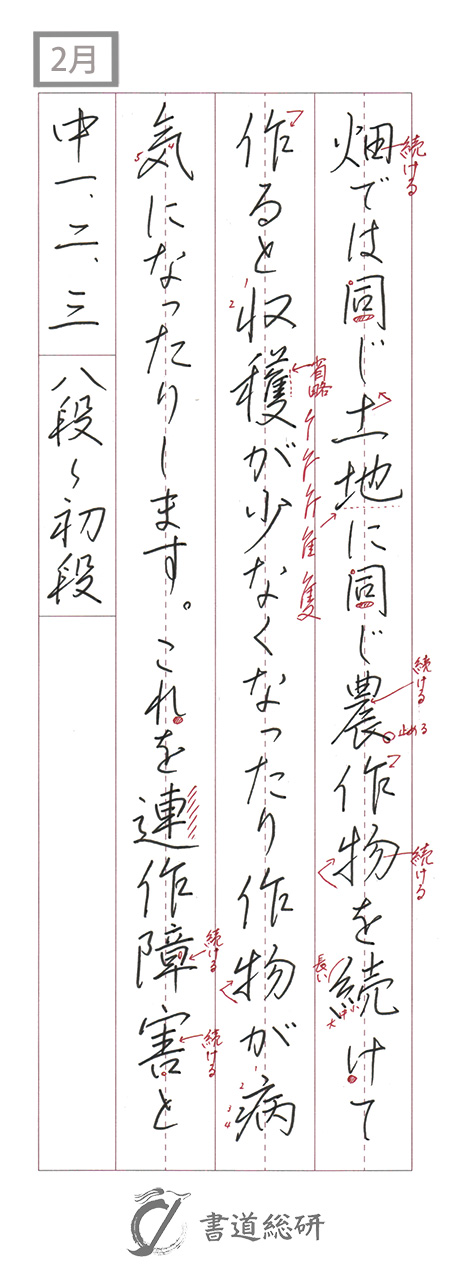 2月
畑では同じ土地に同じ農作物を続けて
作ると収穫が少なくなったり作物が病
気になったりします。これを連作障害と
中一、二、三
八段〜初段
続ける
続ける
止める
続ける
長い
小
中
大
省略
1
2
2
3
4
4
5
続ける
続ける
書道総研